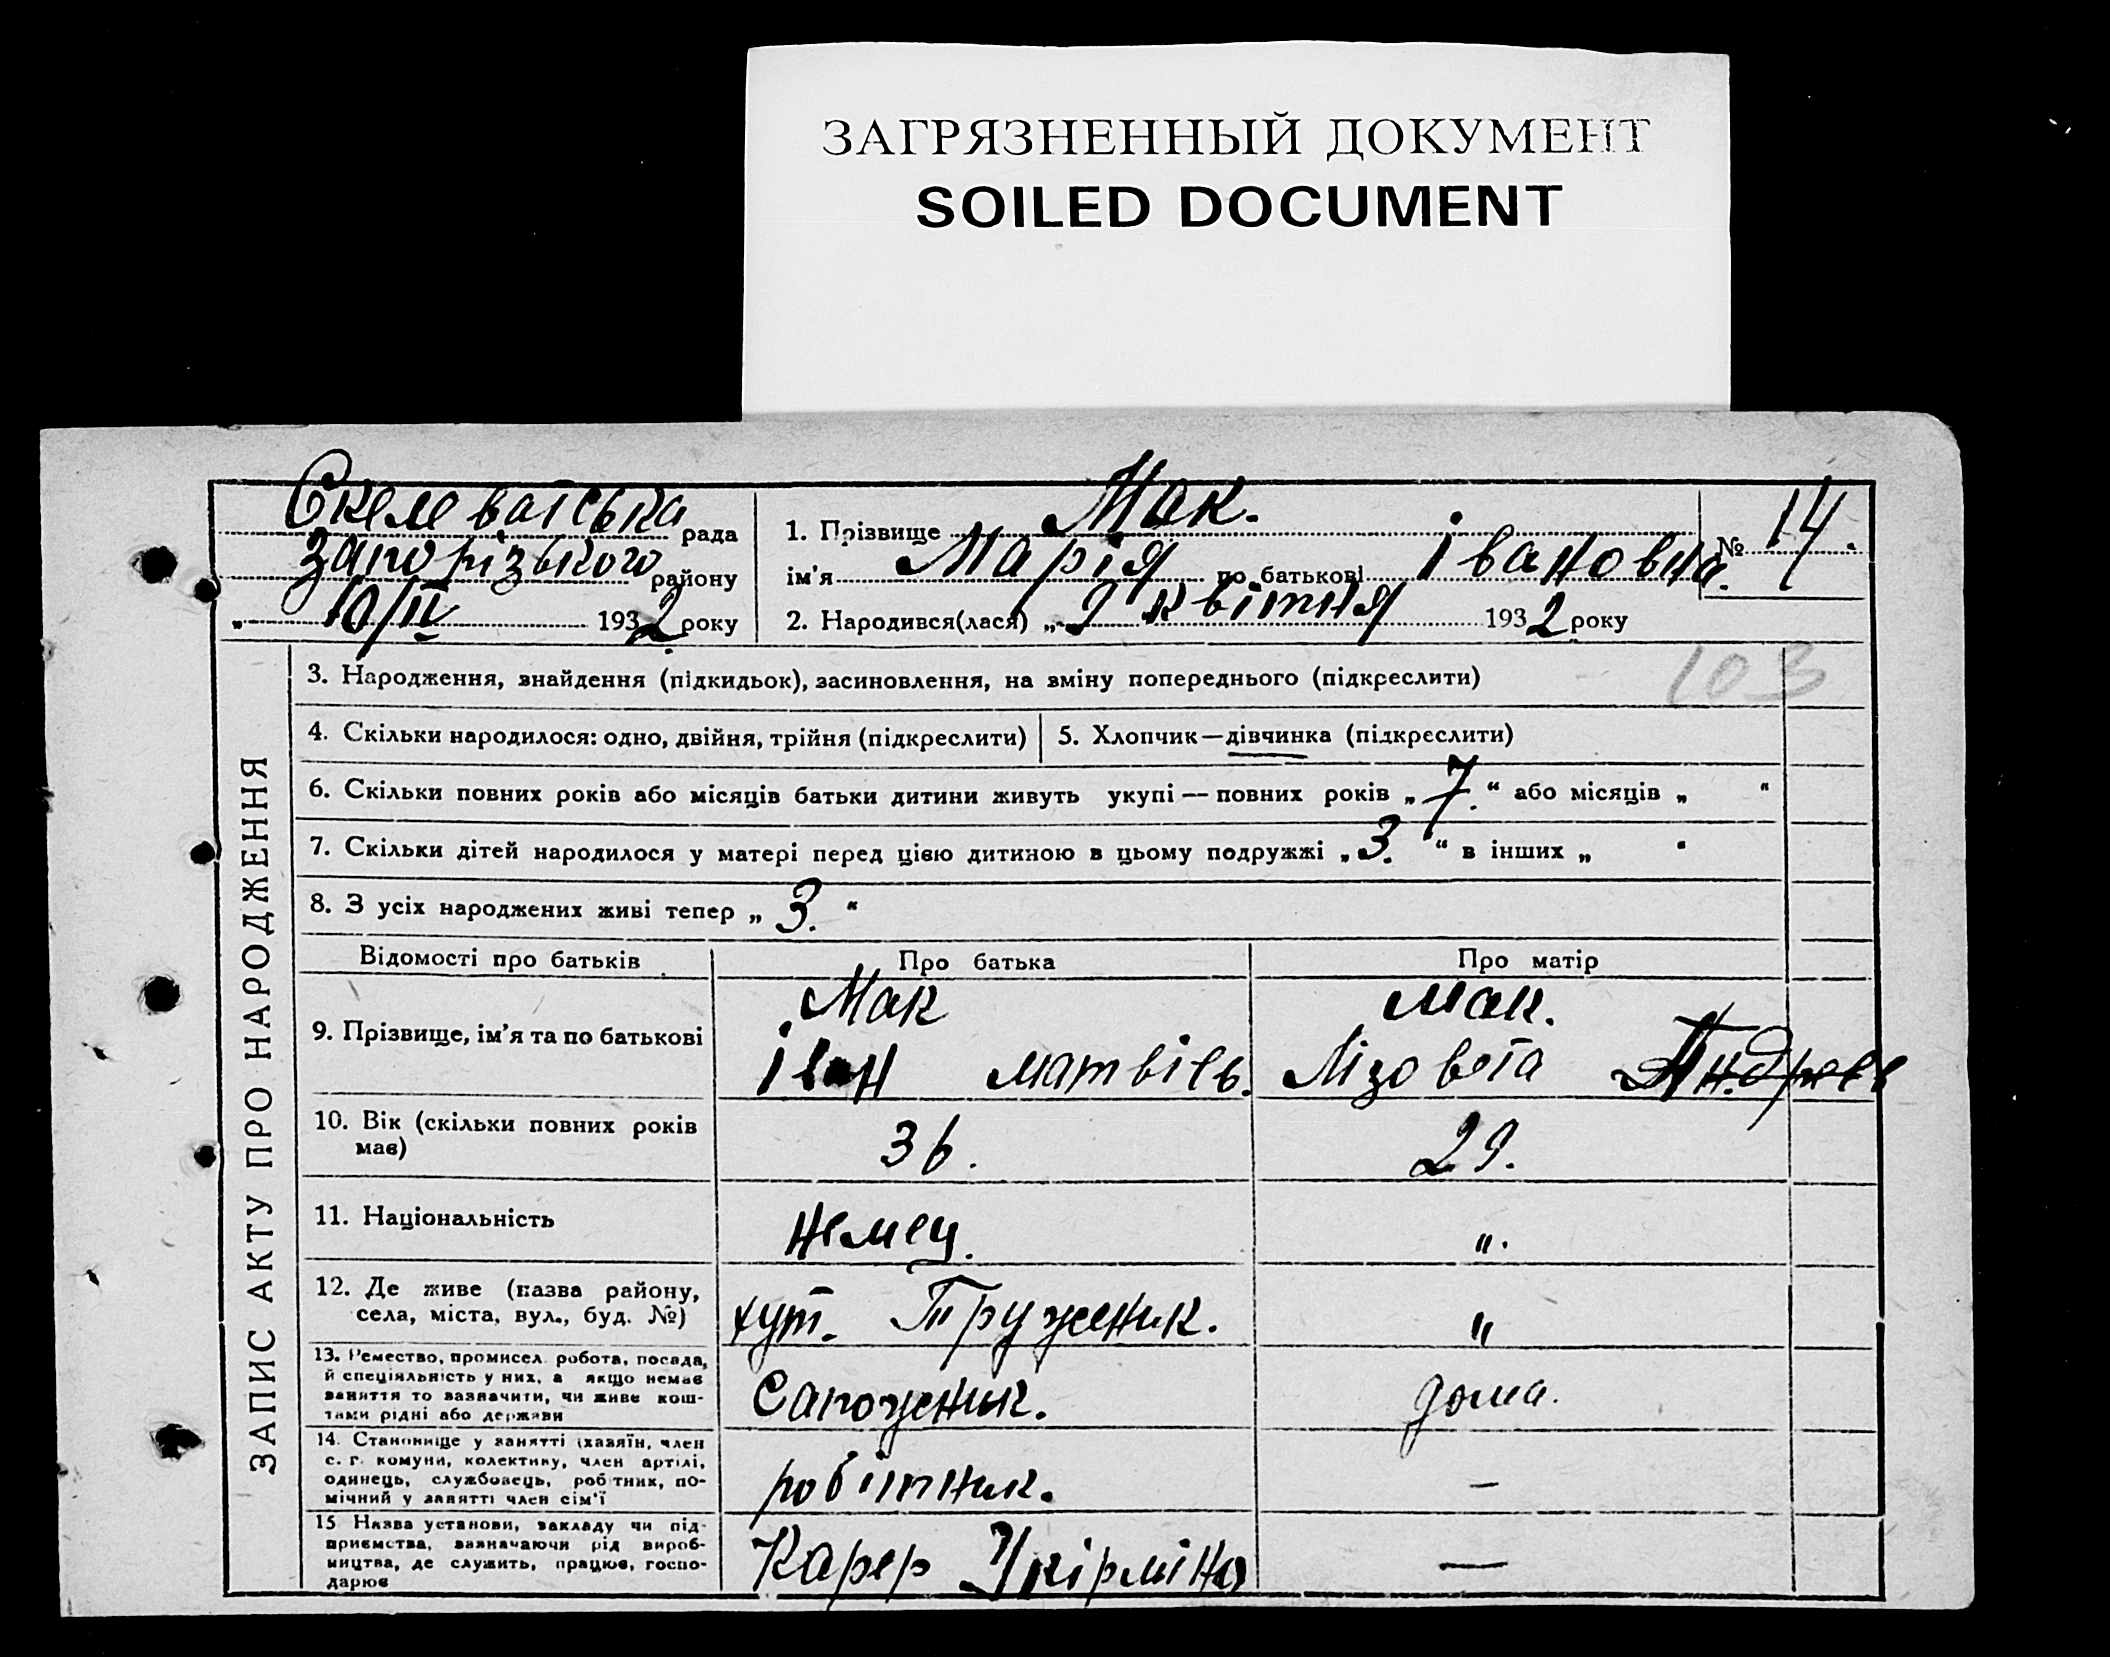 ЗАГРЯЗНЕННЫЙ ДОКУМЕНТ
SOILED DOCUMENT
Скелеватська рада
Запорізького району
„ 10/IV 1932 року
1. Прізвище Мак. № 14.
ім'я Марія по батькові Івановна.
2. Народився(лася) „ 9 квітня 1932 року
103
ЗАПИС АКТУ ПРО НАРОДЖЕННЯ
3. Народження, знайдення (підкидьок), засиновлення, на зміну попереднього (підкреслити)
4. Скільки народилося: одно, двійня, трійня (підкреслити) 5. Хлопчик—дівчинка (підкреслити)
6. Скільки повних років або місяців батьки дитини живуть укупі — повних років „ 7. “ або місяців „ “
7. Скільки дітей народилося у матері перед цією дитиною в цьому подружжі „ 3. “ в інших „ “
8. З усіх народжених живі тепер „ 3. “
Відомості про батьків Про батька Про матір
9. Прізвище, ім'я та по батькові
Мак
Іван Матвіев.
Мак.
Лізовета Андрев
10. Вік (скільки повних років
має)
36.
29.
11. Національність
немец.
„.
12. Де живе (назва району,
села, міста, вул., буд. №)
хут. Труженик.
„
13. Ремество, промисел, робота, посада,
й спеціяльність у них, а якщо немає
заняття то зазначити, чи живе кош-
тами рідні або держави
Сапожник.
дома.
14. Становище у занятті (хазяїн, член
с. г. комуни, колективу, член артілі,
одинець, службовець, робітник, по-
мічний у занятті член сім'ї
робітник.
—
15 Назва установи, закладу чи під-
приємства, зазначаючи рід вироб-
ництва, де служить, працює, госпо-
дарює
Карер
—